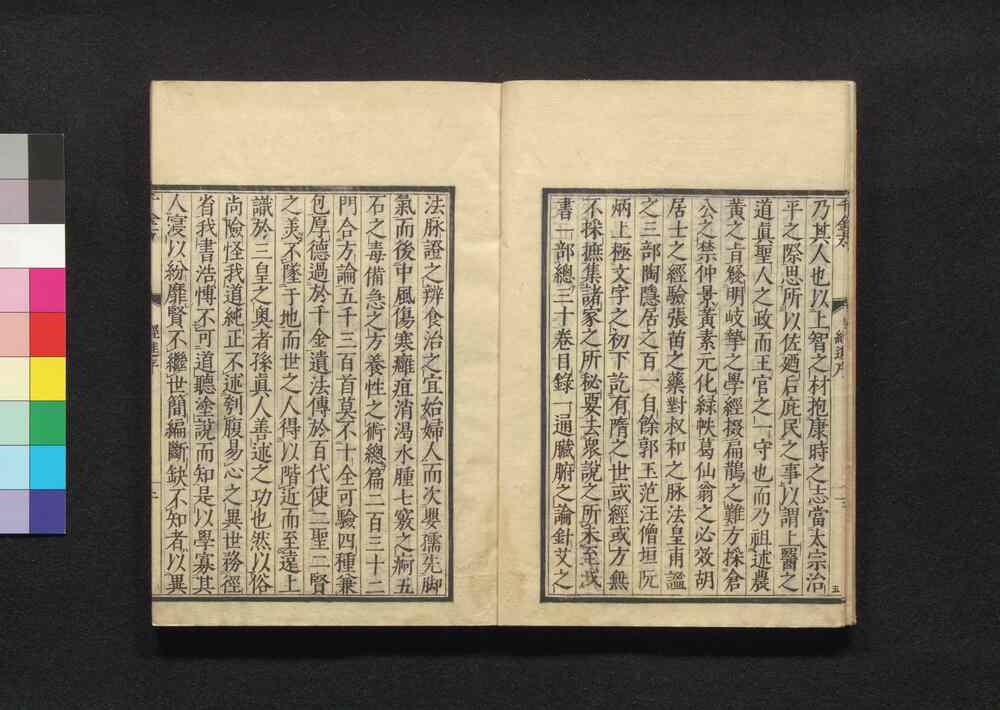 乃其人也以上智之材抱康時之志當太宗治
平之際思所以佐廼后庇民之事以謂上醫之
道眞聖人之政而王官之一守也而乃祖述農
黃之旨發明岐摯之學經掇扁鵲之難方採倉
公之禁仲景黃素元化緑帙葛仙翁之必效胡
居士之經驗張苗之藥對叔和之脉法皇甫謐
之三部陶隱居之百一自餘郭玉范汪僧垣阮
炳上極文字之初下訖有隋之世或經或方無
不採摭集諸家之所秘要去衆說之所未至成
書一部總三十卷目錄一通臟腑之論針艾之
法脉證之辨食治之宜始婦人而次嬰孺先脚
氣而後中風傷寒癰疽消渴水腫七竅之痾五
石之毒備急之方養性之術總篇二百三十二
門合方論五千三百首莫不十全可驗四種兼
包厚德過於千金遺法傳於百代使二聖二賢
之美不墜于地而世之人得以階近而至遠上
識於三皇之奧者孫眞人善述之功也然以俗
尚險怪我道純正不述刳腹易心之異世務徑
省我書浩博不可道聽塗說而知是以學寡其
人寖以紛靡賢不繼世簡編斷缺不知者以異